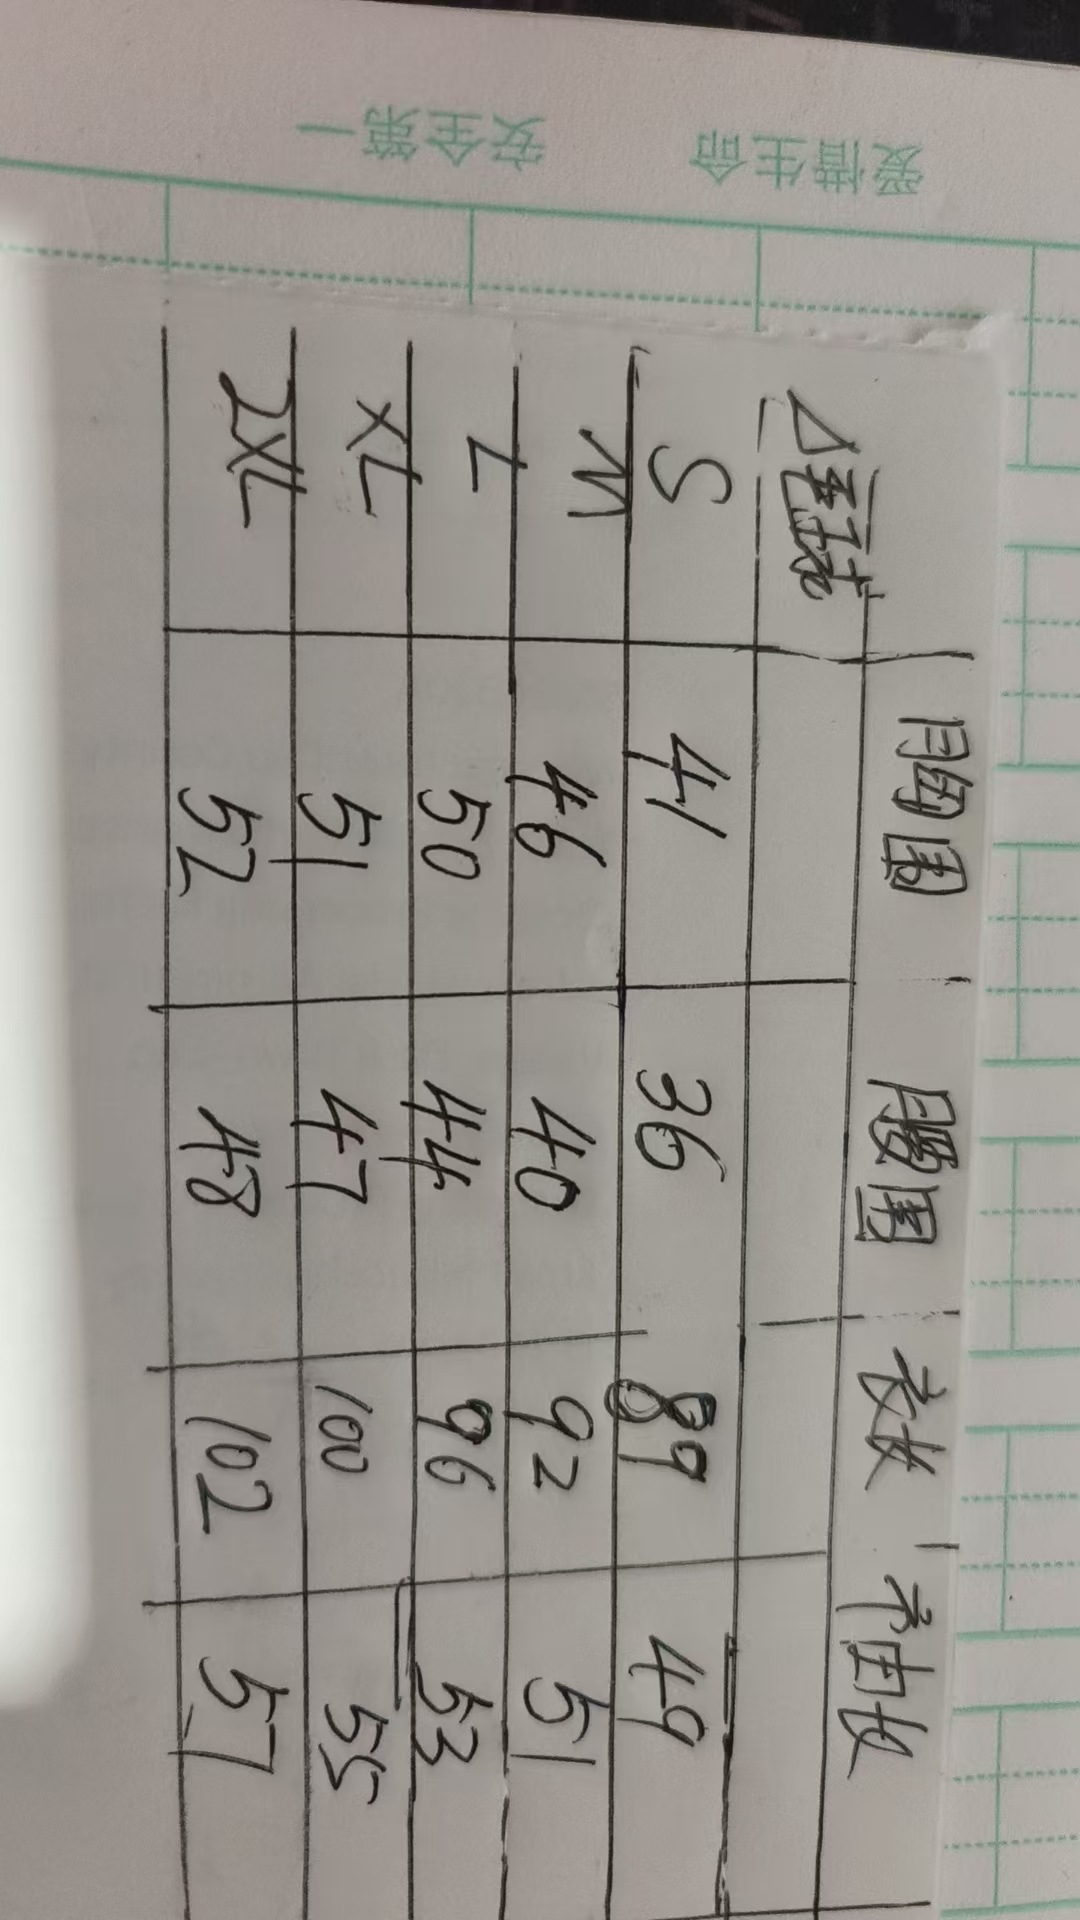 爱惜生命 安全第一
胸围 腰围 衣长 袖长
S 41 36 89 49
M 46 40 92 51
L 50 44 96 53
XL 51 47 100 55
2XL 52 48 102 57